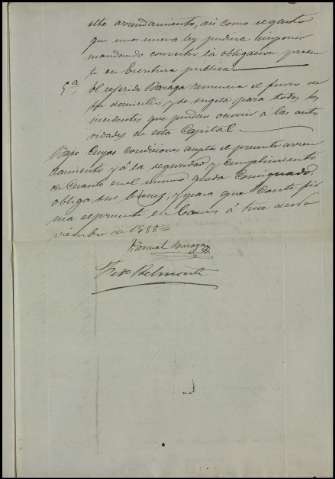 este arrendamiento, así como el gasto
que una nueva ley pudiera imponer
mandando convertir la obligacion presen-
te en Escritura publica.
5.ª El referido Baraga renuncia el fuero de
su domicilio y se sugeta para todos los
incidentes que puedan ocurrir a las auto-
ridades de esta Capital.
Bajo cuyas condiciones acepta el presente arren-
damiento y á la seguridad y cumplimiento
de cuanto en el mismo queda consignado,
obliga sus bienes, y para que conste fir-
ma el presente en á de No-
viembre de 1888
Baraga
Belmonte